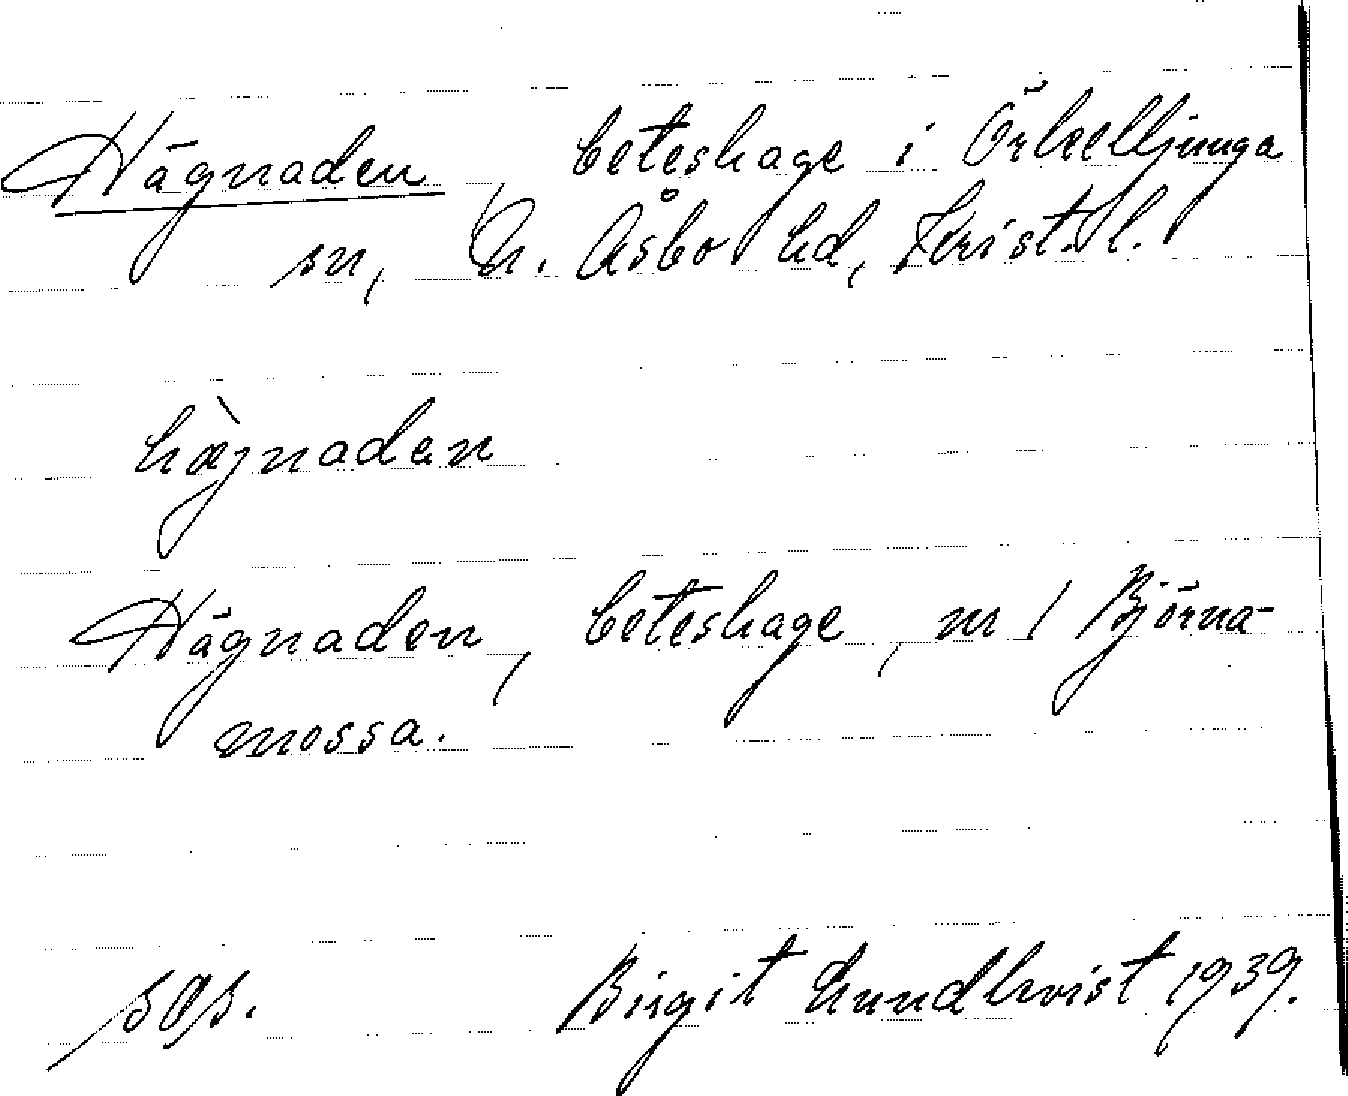 Hägnaden, beteshage i Örkelljunga
sn, N. Åsbo hd, Krist. l.
hæ̀jnaden
Hägnaden, beteshage, nr 1 Björna-
mossa.
Birgit Lundkvist 1939.